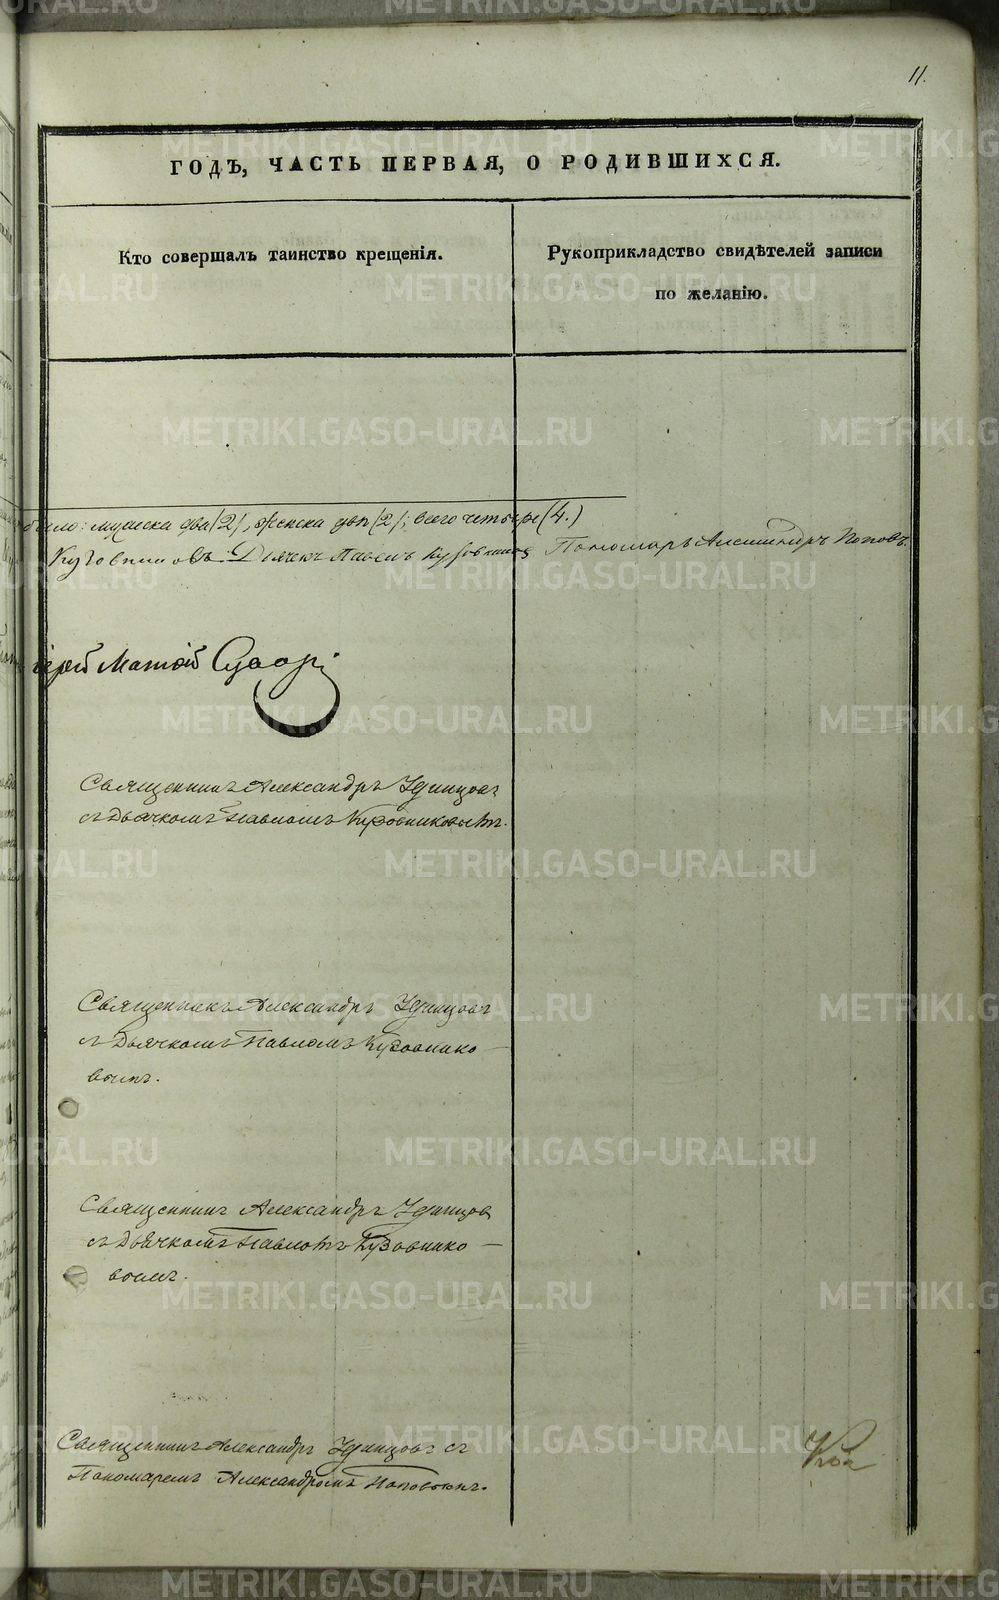 11.
ГОДЪ, ЧАСТЬ ПЕРВАЯ, О РОДИВШИХСЯ.
Кто совершалъ таинство крещенія.
Рукоприкладство свидѣтелей записи
по желанію.
было: мужеска два (2), женска двѣ (2); всего четыре (4.)
Кузовниковъ. Дьячекъ Павелъ Кузовниковъ Пономарь Александръ Поповъ.
іерей Матѳій
Священникъ Александръ Удинцовъ
съ Дьячкомъ Павломъ Кузовниковымъ.
Священникъ Александръ Удинцовъ
съ Дьячкомъ Павломъ Кузовнико
вымъ.
Священникъ Александръ Удинцовъ
съ Дьячкомъ Павломъ Кузовнико
вымъ.
Священникъ Александръ Удинцовъ съ
Пономаремъ Александромъ Поповымъ.
METRIKI.GASO-URAL.RU